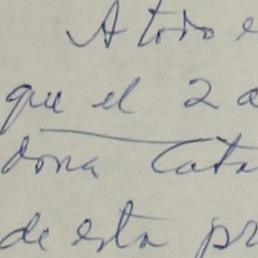 A todo e
que el 2 a
dona Cata
de esta pr